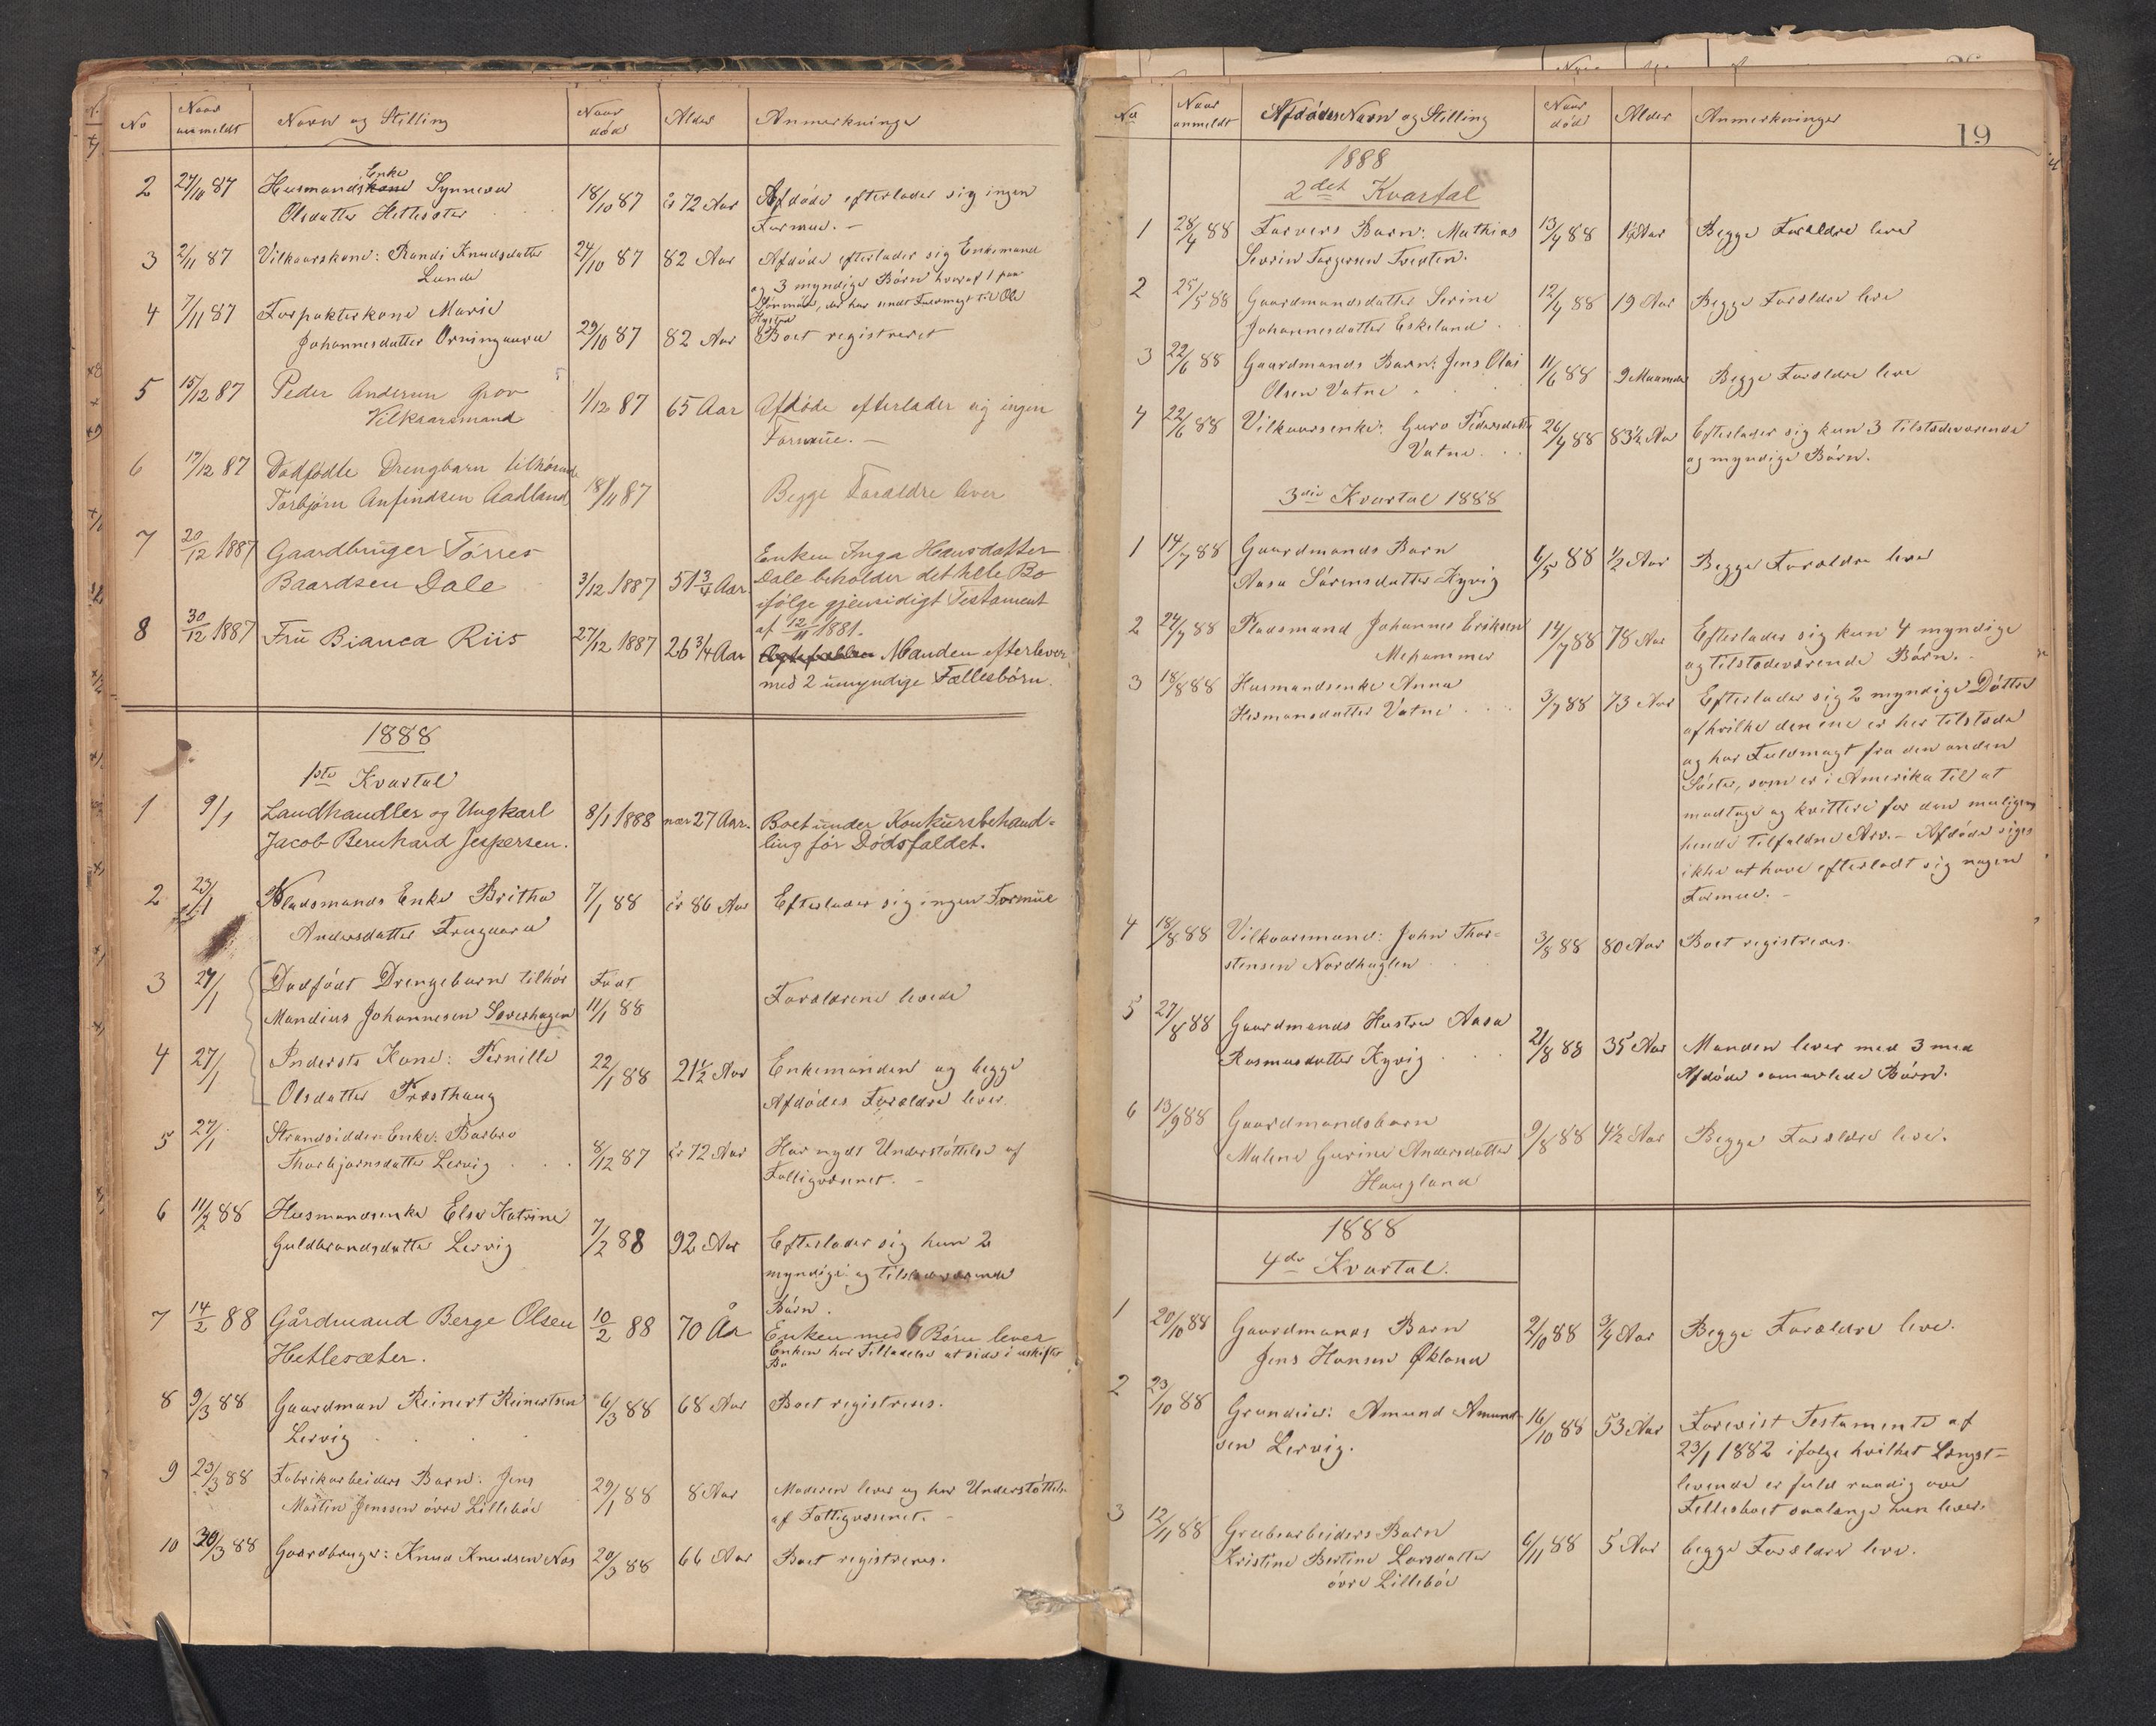 No Naar anmeldt Navn og Stilling Naar død Alder Anmerkninger
2 27/10 87 Husmands Enke kone Synneva 18/10 87 ir 72 Aar Afdøde efterlader sig ingen
Olsdatter Hetlesæter Formue. –
3 2/11 87 Vilkaarskone: Randi Knudsdatter 24/10 87 82 Aar Afdøde efterlader sig Enkemand
Lunde og 3 myndige Börn hvoraf 1 paa
4 7/11 87 Forpakterkone Marie
Johannesdatter Orninggaard 29/10 87 82 Aar Boet registreret
5 15/12 87 Peder Andersen Grov 1/12 87 65 Aar Afdøde efterlader sig ingen
Vilkaarsmand Formüe. –
6 17/12 87 Dødfødte Drengbarn tilhörende
Torbjørn Anfindsen Aadland 18/11 87 Begge Forældre lever
7 20/12 1887 Gaardbrüger Törres Enken Inga Hansdatter
Baardsen Dale 3/12 1887 51 3/4 Aar. Dale beholder det hele Bo
ifølge gjensidigt Testament
af 12/11 1881.
8 30/12 1887 Frü Bianca Riis 27/12 1887 26 3/4 Aar Manden efterlever
med 2 ümyndige Fællesbörn.
1888
1ste Kvartal
1 9/1 Landhandler og Ungkarl 8/1 1888 nær 27 Aar. Boet ünder Konkürsbehand=
Jacob Bernhard Jespersen. ling för Dödsfaldet.
2 23/1 Pladsmands Enke Britha 7/1 88 ir 86 Aar Efterlader sig ingen Formüe
Andersdatter Frugaard
3 27/1 Dødfødt Drengebarn tilhör Født
Mandius Johannesen Sørerhagen 11/1 88 Forældrene levede
4 27/1 Inderste Kone: Pernille 22/1 88 21 1/2 Aar Enkemanden og begge
Olsdatter Præsthaug Afdødes Forældre lever.
5 27/1 Strandsidder Enke: Barbro
Thorbjørnsdatter Lervig 8/12 87 ir 72 Aar Har nydt Understöttelse af
Fattigvæsenet. –
6 11/2 88 Husmandsenke Else Katrine
Guldbrandsdatter Lervig 7/2 88 92 Aar Efterlader sig kun 2
myndige og tilstedeværende
Börn.
7 14/2 88 Gårdmand Berge Olsen 10/2 88 70 År Enken med 6 Börn lever
Hetlesæter. Enken har Tilladelse at sidde i uskiftet
Bo
8 9/3 88 Gaardman Reinert Reinertsen 6/3 88 68 Aar Boet registreres.
Lervig
9 23/3 88 Fabrikarbeiders Barn: Jens
Martin Jenssen övre Lillebøe 29/1 88 8 Aar Moderen lever og har Understöttelse
af Fattigvæsenet. –
10 30/3 88 Gaardbruger: Knud Knudsen Næs 20/3 88 66 Aar Boet registreres.
19
No Naar anmeldt Afdødes Navn og Stilling Naar død Alder Anmerkninger
1888
2det Kvartal
1 28/4 88 Farvers Barn: Mathias 13/4 88 Aar Begge Forældre lever
Severin Torgersen Tveiten.
2 25/5 88 Gaardmandsdatter Serine 12/4 88 19 Aar Begge Forældre leve
Johannesdatter Eskeland
3 22/6 88 Gaardmands Barn: Jens Olai 11/6 88 9 Maaneder Begge Forældre leve
Olsen Vatne
4 22/6 88 Vilkaarsenke: Guro Pedersdatter 26/4 88 83 1/2 Aar Efterlader sig kun 3 tilstedeværende
Vatne. og myndige Börn.
3die Kvartal 1888
1 14/7 88 Gaardmands Barn 6/5 88 1/2 Aar Begge Forældre lever
Aasa Sörensdatter Kyvig
2 24/7 88 Pladsmand Johannes Eriksen 14/7 88 78 Aar Efterlader sig kun 4 myndige
Mehammer og tilstedeværende Börn.
3 18/8 88 Husmandsenke Anna 3/7 88 73 Aar Efterlader sig 2 myndige Døttre
Hermansdatter Vatne af hvilke den ene er her tilstede
og har Fuldmagt fra den anden
Söster, som er i Amerika til at
modtage og kvittere for den muligens
hende tilfaldne Arv. – Afdøde siges
ikke at have efterladt sig nogen
Formue. –
4 18/8 88 Vilkaarsmand: John Thor=
stensen Nordhuglen 3/8 88 80 Aar Boet registreres.
5 27/8 88 Gaardmands Hustru Aasa
Rasmusdatter Kyvig 21/8 88 35 Aar Manden lever med 3 med
Afdøde sammavlede Börn.
6 13/9 88 Gaardmandsbarn
Malene Gurine Andersdatter 9/8 88 4 1/2 Aar Begge Forældre leve.
Haugland
1888
4de Kvartal.
1 20/10 88 Gaardmands Barn 2/10 88 3/4 Aar Begge Forældre leve.
Jens Hansen Økland
2 23/10 88 Grundeier: Amund Amund= 16/10 88 53 Aar Forevist Testamente af
sen Lervig. 23/1 1882 ifølge hvilket Længst=
levende er fuld raadig over
Fellesboet saalænge hun lever.
3 12/11 88 Grubearbeiders Barn
Kristine Bertine Larsdatter 6/11 88 5 Aar begge Forældre leve.
övre Lillebøe